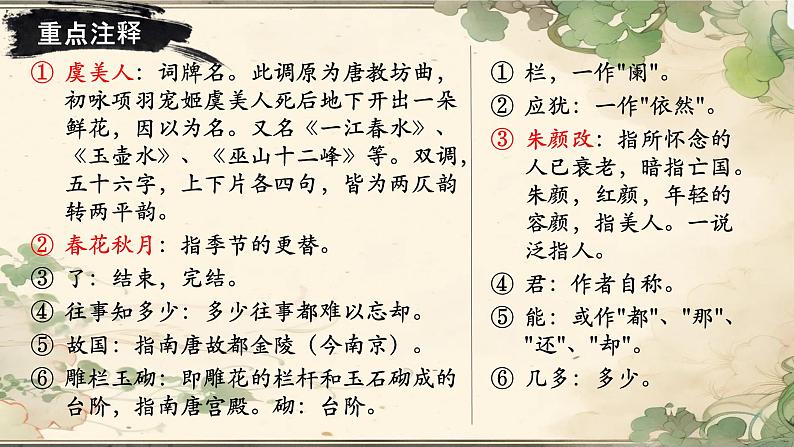 重点注释
① 虞美人：词牌名。此调原为唐教坊曲，
初咏项羽宠姬虞美人死后地下开出一朵
鲜花，因以为名。又名《一江春水》、
《玉壶水》、《巫山十二峰》等。双调，
五十六字，上下片各四句，皆为两仄韵
转两平韵。
② 春花秋月：指季节的更替。
③ 了：结束，完结。
④ 往事知多少：多少往事都难以忘却。
⑤ 故国：指南唐故都金陵（今南京）。
⑥ 雕栏玉砌：即雕花的栏杆和玉石砌成的
台阶，指南唐宫殿。砌：台阶。
① 栏，一作"阑"。
② 应犹：一作"依然"。
③ 朱颜改：指所怀念的
人已衰老，暗指亡国。
朱颜，红颜，年轻的
容颜，指美人。一说
泛指人。
④ 君：作者自称。
⑤ 能：或作"都"、"那"、
"还"、"却"。
⑥ 几多：多少。